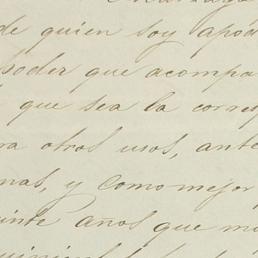 de quien soy apod
poder que acompa
que sea la corres
ra otros usos, ante
nas, y como mejor
einte años que ma